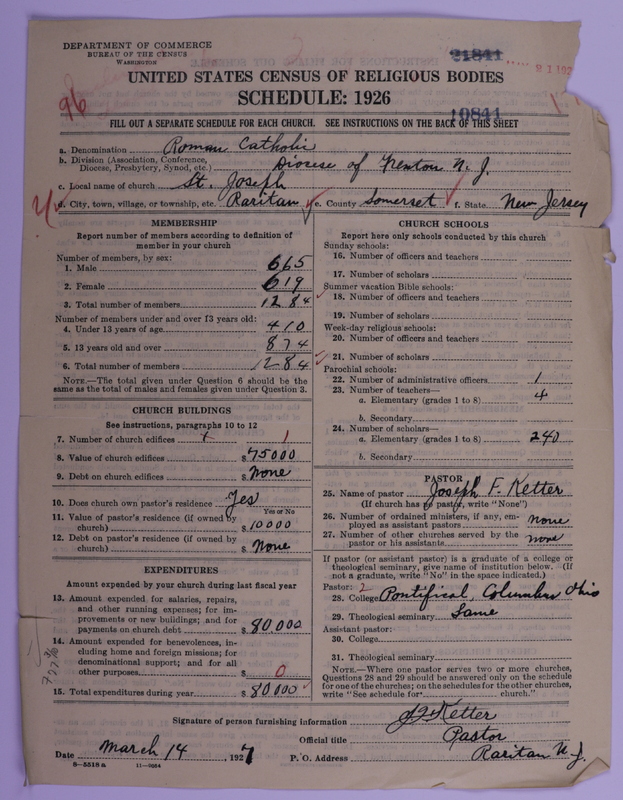 DEPARTMENT OF COMMERCE
BUREAU OF THE CENSUS
WASHINGTON
21841
21 192
UNITED STATES CENSUS OF RELIGIOUS BODIES
SCHEDULE: 1926
96
10841
FILL OUT A SEPARATE SCHEDULE FOR EACH CHURCH. SEE INSTRUCTIONS ON THE BACK OF THIS SHEET
a. Denomination Roman Catholic
b. Division (Association, Conference, Diocese, Presbytery, Synod, etc.) Diocese of Trenton N. J.
c. Local name of church St. Joseph
d. City, town, village, or township, etc. Raritan e. County Somerset f. State New Jersey
MEMBERSHIP
Report number of members according to definition of
member in your church
Number of members, by sex:
1. Male 665
2. Female 619
3. Total number of members 1284
Number of members under and over 13 years old:
4. Under 13 years of age 410
5. 13 years old and over 874
6. Total number of members 1284
NOTE.—The total given under Question 6 should be the
same as the total of males and females given under Question 3.
CHURCH BUILDINGS
See instructions, paragraphs 10 to 12
7. Number of church edifices 1
8. Value of church edifices $75000
9. Debt on church edifices $None
10. Does church own pastor's residence Yes
Yes or No
11. Value of pastor's residence (if owned by
church) $10000
12. Debt on pastor's residence (if owned by
church) $None
EXPENDITURES
Amount expended by your church during last fiscal year
13. Amount expended for salaries, repairs,
and other running expenses; for im-
provements or new buildings; and for
payments on church debt $80.000
14. Amount expended for benevolences, in-
cluding home and foreign missions; for
denominational support; and for all
other purposes $0
15. Total expenditures during year $80000
CHURCH SCHOOLS
Report here only schools conducted by this church
Sunday schools:
16. Number of officers and teachers
17. Number of scholars
Summer vacation Bible schools:
18. Number of officers and teachers
19. Number of scholars
Week-day religious schools:
20. Number of officers and teachers
21. Number of scholars
Parochial schools:
22. Number of administrative officers 1
23. Number of teachers—
a. Elementary (grades 1 to 8) 4
b. Secondary
24. Number of scholars—
a. Elementary (grades 1 to 8) 240
b. Secondary
PASTOR
25. Name of pastor Joseph F. Ketter
(If church has no pastor, write "None")
26. Number of ordained ministers, if any, em-
ployed as assistant pastors none
27. Number of other churches served by the
pastor or his assistants none
If pastor (or assistant pastor) is a graduate of a college or
theological seminary, give name of institution below. (If
not a graduate, write "No" in the space indicated.)
Pastor: 2
28. College Pontifical, Columbus Ohio
29. Theological seminary Same
Assistant pastor:
30. College
31. Theological seminary
NOTE.—Where one pastor serves two or more churches,
Questions 28 and 29 should be answered only on the schedule
for one of the churches; on the schedules for the other churches,
write "See schedule for church."
Signature of person furnishing information J F Ketter
Official title Pastor
Date March 14, 1927 P. O. Address Raritan N. J.
8—5518 a 11—9084